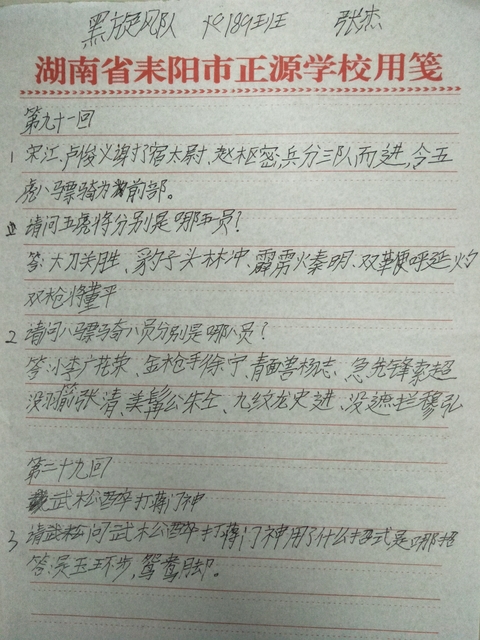 黑旋风队 K189班 张杰
湖南省耒阳市正源学校用笺
第九十一回
1 宋江、卢俊义谢了宿太尉、赵枢密,兵分三队而进,令五
虎八骠骑为前部。
请问五虎将分别是哪五员?
答:大刀关胜、豹子头林冲、霹雳火秦明、双鞭呼延灼
双枪将董平
2 请问八骠骑八员分别是哪八员?
答:小李广花荣、金枪手徐宁、青面兽杨志、急先锋索超
没羽箭张清、美髯公朱仝、九纹龙史进、没遮拦穆弘
第二十九回
武松醉打蒋门神
3 请问武松醉打蒋门神用了什么招式,是哪招
答:是玉环步,鸳鸯脚。